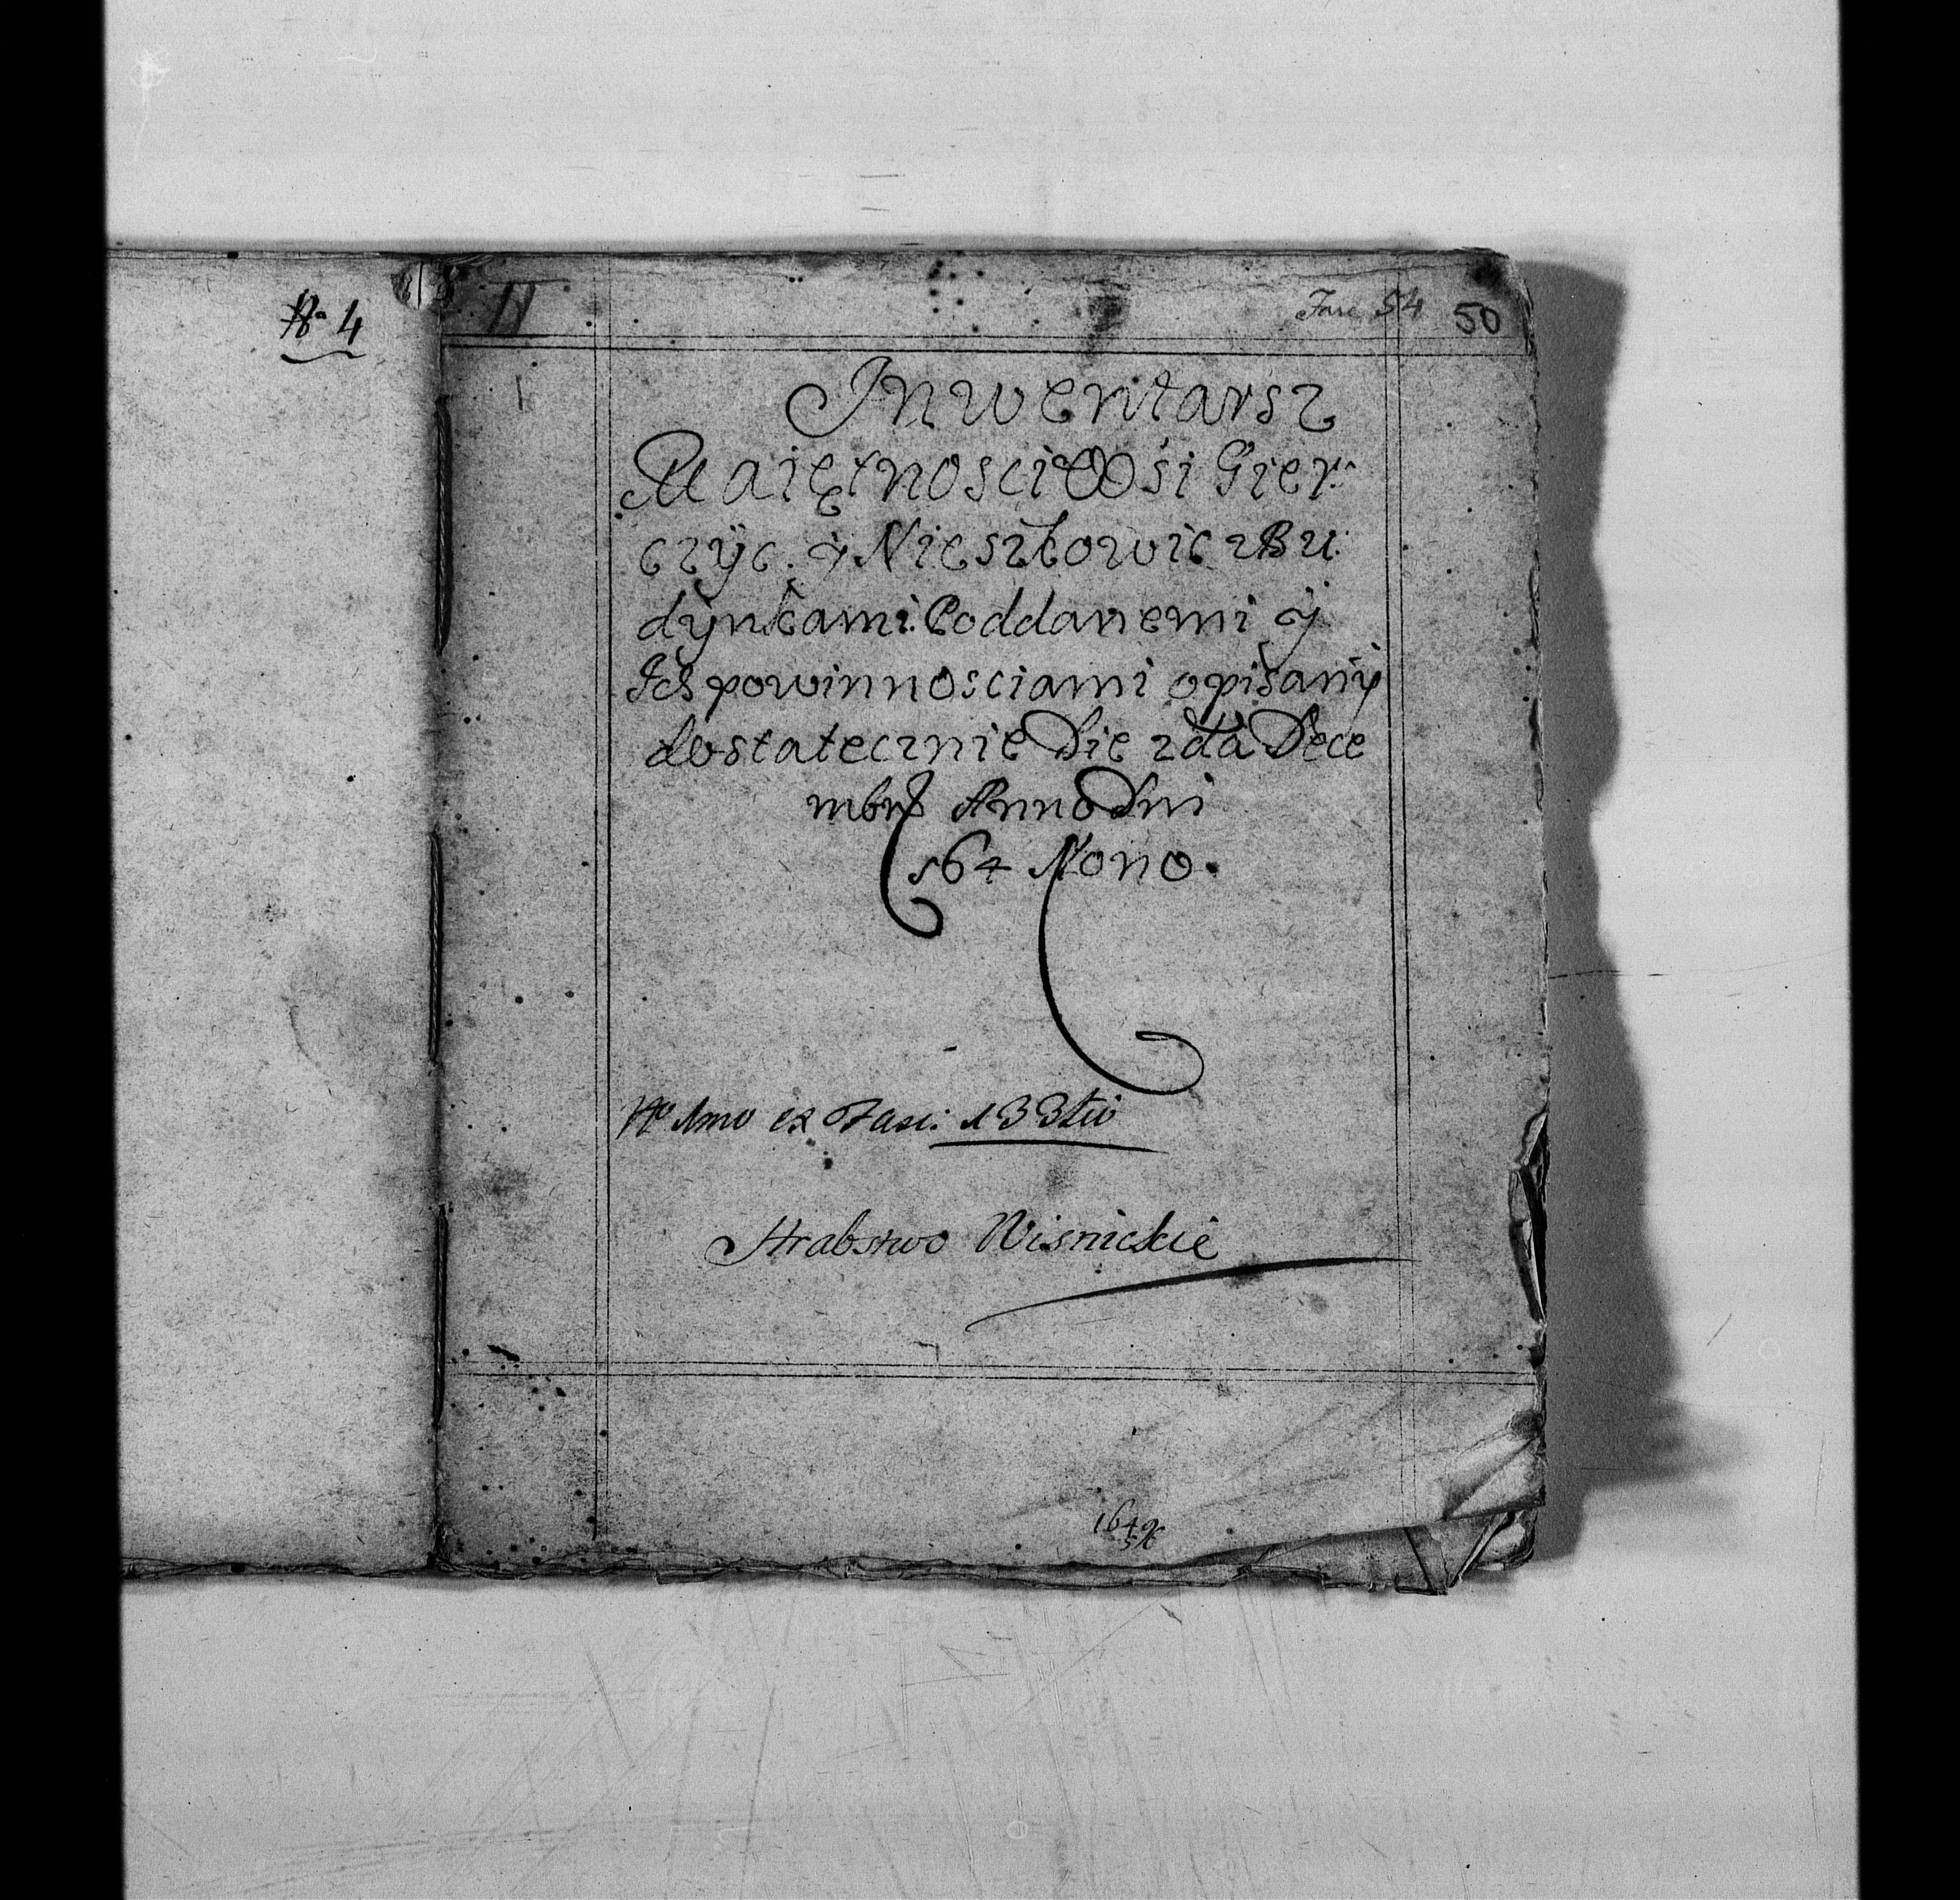 No 4
II
Fasc 54 50
Inwentarsz
Maiętnosci Wśi Gier:
czÿc. ÿ Nieszkowic z Bu:
dÿnkami Poddanemi ÿ
Ich powinnosciami opisanÿ
dostatecznie Die 2da Dece
mbris Anno Dni
164 Nono.
No 1mo ex Fasc: 133tio
Hrabstwo Wisnickie
1649